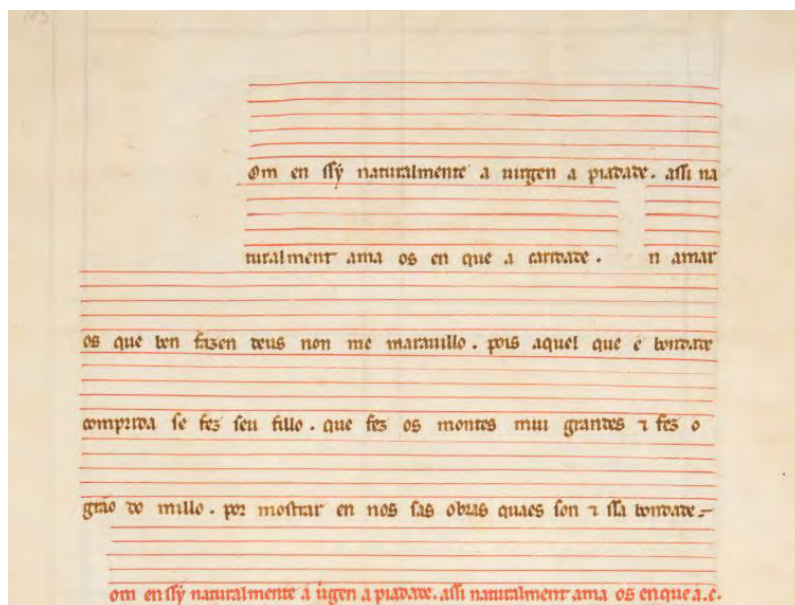 103
Om en ssy naturalmente a uirgen a piadade. assi na
turalment ama os en que a caridade. n amar
os que ben fazen deus non me marauillo. pois aquel que é bondade
comprida se fez seu fillo. que fez os montes mui grandes ⁊ fez o
grão do millo. por mostrar en nos sas obras quaes son ⁊ ssa bondade
om en ssy naturalmente a uirgen a piadade. assi naturalment ama os en que a. c.